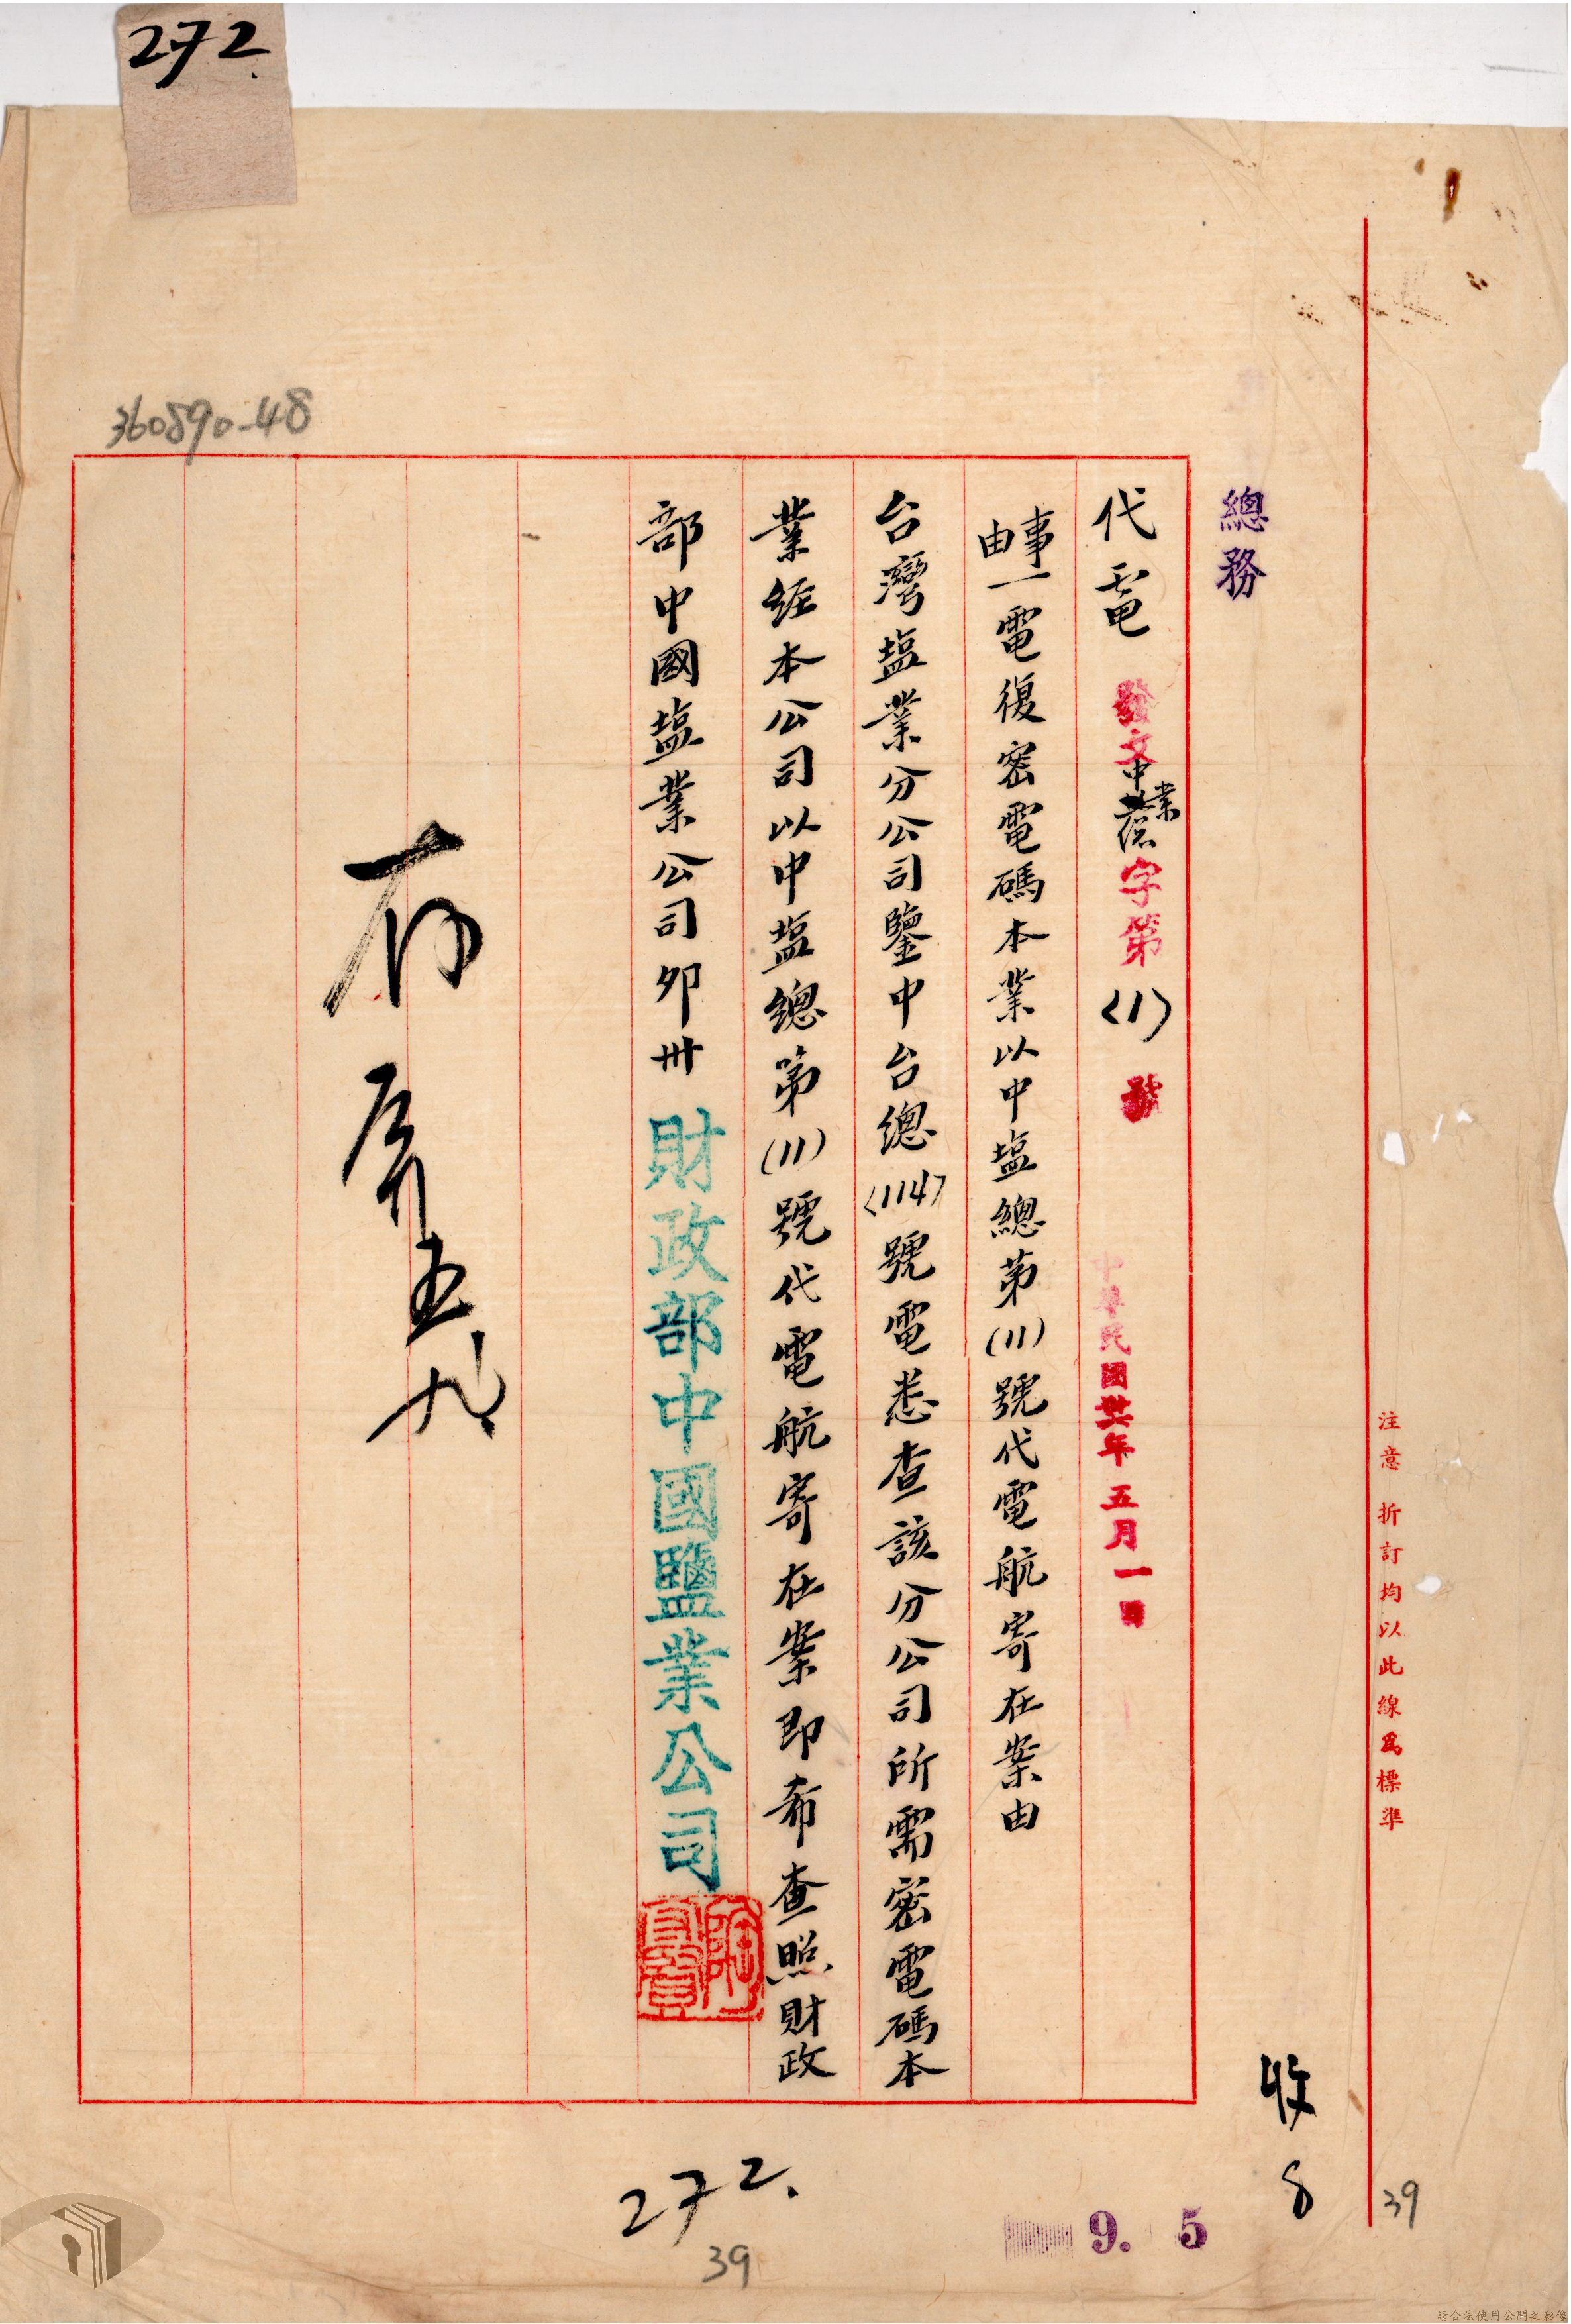 272.
360890-48
總務
代電 發文中業 字第〈1〉號 中華民國卅六年五月一日
事由一電復密電碼本業以中塩總第(11)號代電航寄在案由
台灣塩業分公司鑒中台總〈1114〉號電悉查該分公司所需密電碼本
業經本公司以中塩總第(11)號代電航寄在案即希查照財政
部中國塩業公司卯卅
財政部中國鹽業公司
存
五
九
注意 折訂均以此線為標準
收 8
39
272.
39
9. 5
請合法使用公開之影像